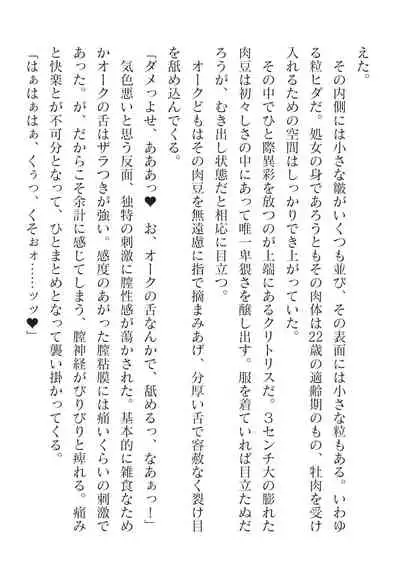 えた。
　その内側には小さな皺がいくつも並び、その表面には小さな粒もある。いわゆ
る粒ヒダだ。処女の身であろうともその肉体は22歳の適齢期のもの、牡肉を受け
入れるための空間はしっかりでき上がっていた。
　その中でひと際異彩を放つのが上端にあるクリトリスだ。３センチ大の膨れた
肉豆は初々しさの中にあって唯一卑猥さを醸し出す。服を着ていれば目立たぬだ
ろうが、むき出し状態だと相応に目立つ。
　オークどもはその肉豆を無遠慮に指で摘まみあげ、分厚い舌で容赦なく裂け目
を舐め込んでくる。
「ダメっよせ、あああっ♥　お　オークの舌なんかで、舐めるっ、なあぁっ！」
　気色悪いと思う反面、独特の刺激に膣性感が蕩かされた。基本的に雑食なため
かオークの舌はザラつきが強い。感度のあがった膣粘膜には痛いくらいの刺激で
あった。が、だからこそ余計に感じてしまう、膣神経がびりびりと痺れる。痛み
と快楽とが不可分となって、ひとまとめとなって襲い掛かってくる。
「はぁはぁはぁ、くぅっ、くそぉォ……ッッ♥」